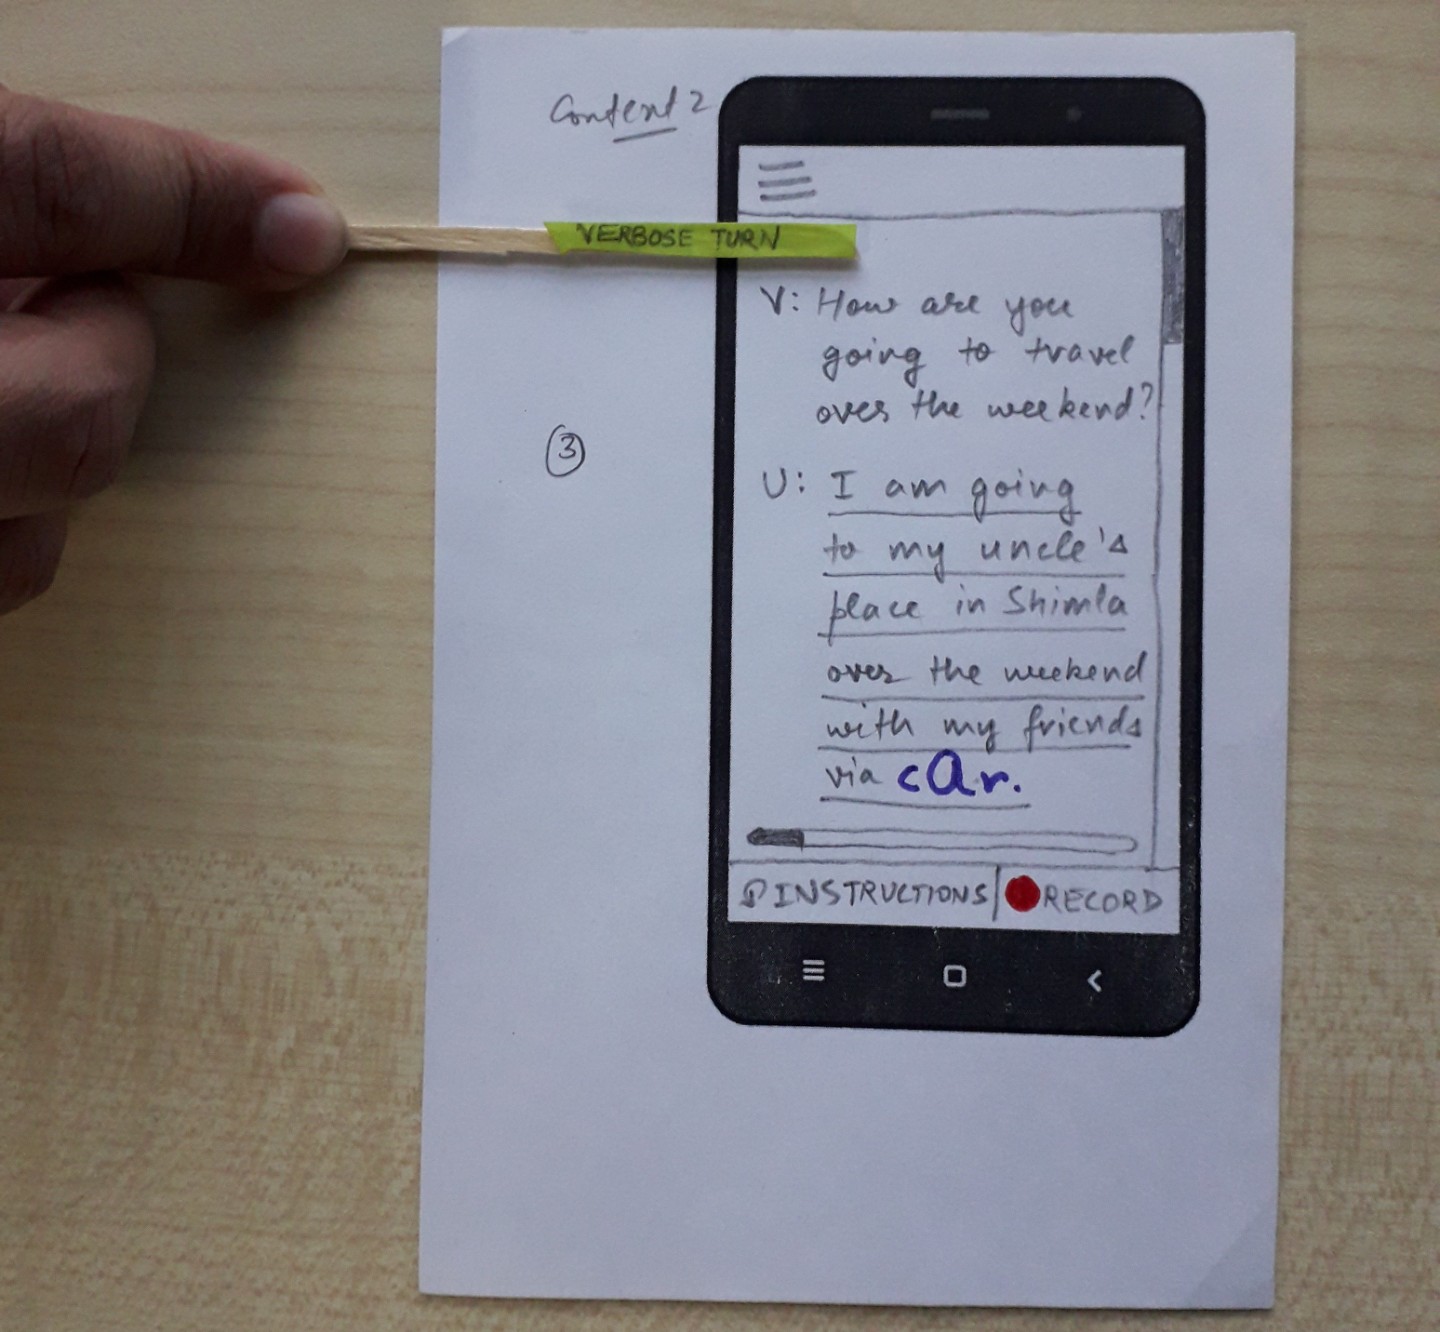 Context 2
VERBOSE TURN
V: How are you
going to travel
over the weekend?
3
U: I am going
to my uncle's
place in Shimla
over the weekend
with my friends
via cAr.
INSTRUCTIONS | RECORD